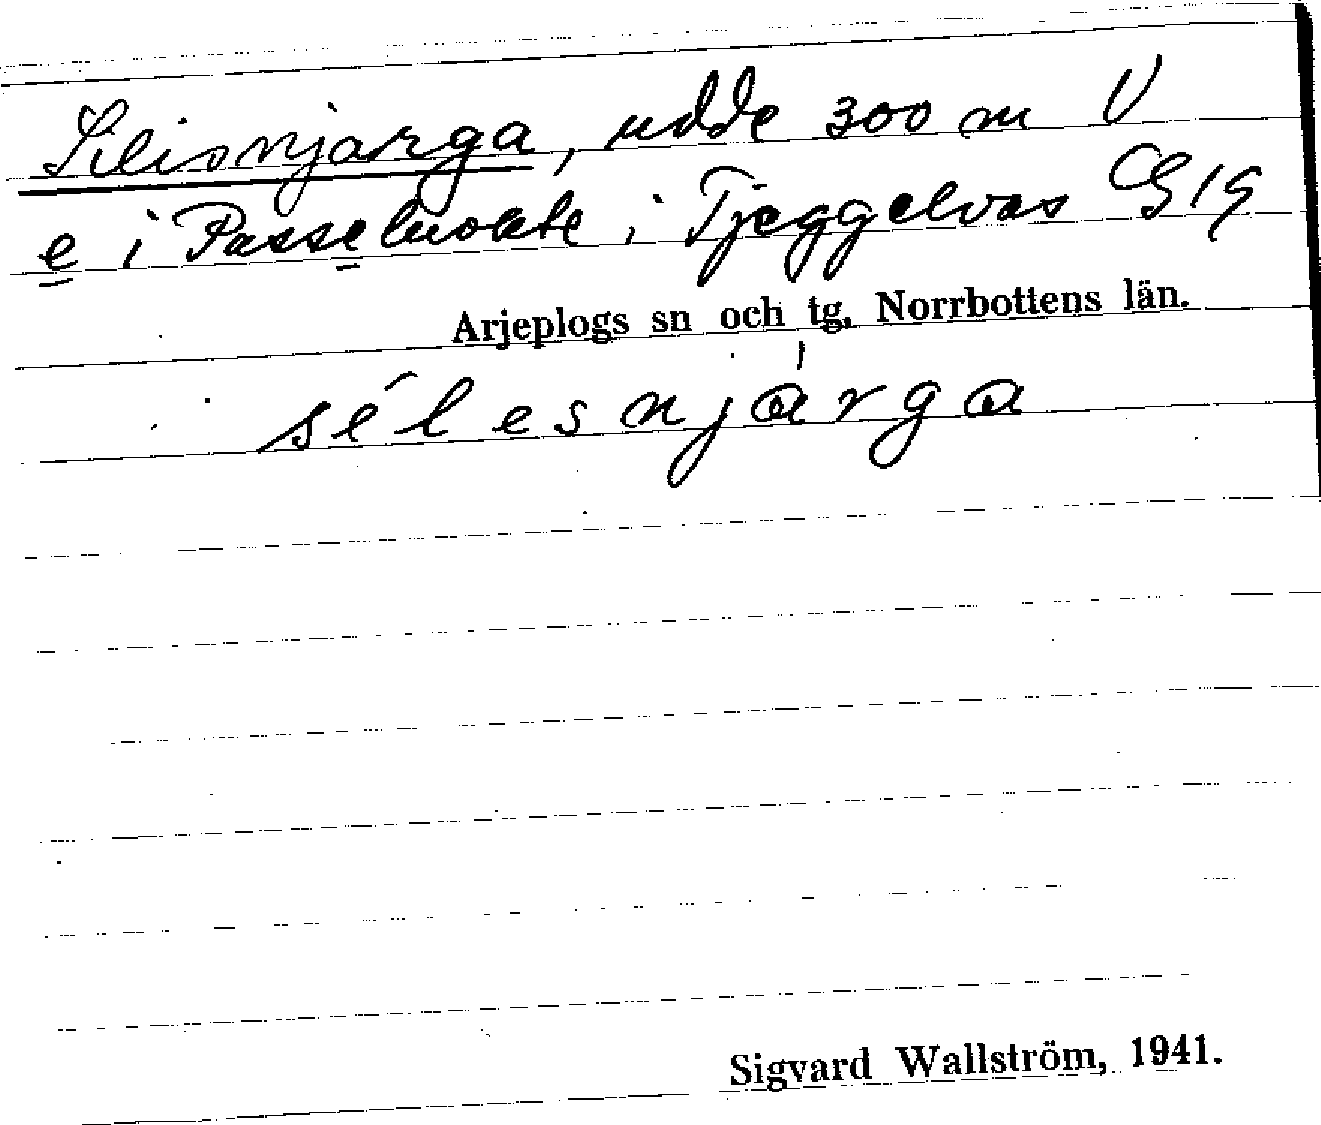 Silisnjarga, udde 300 m V
e i Passeluokte i Tjeggelvas G19
Arjeplogs sn och tg, Norrbottens län.
sélesnjárga
Sigvard Wallström, 1941.